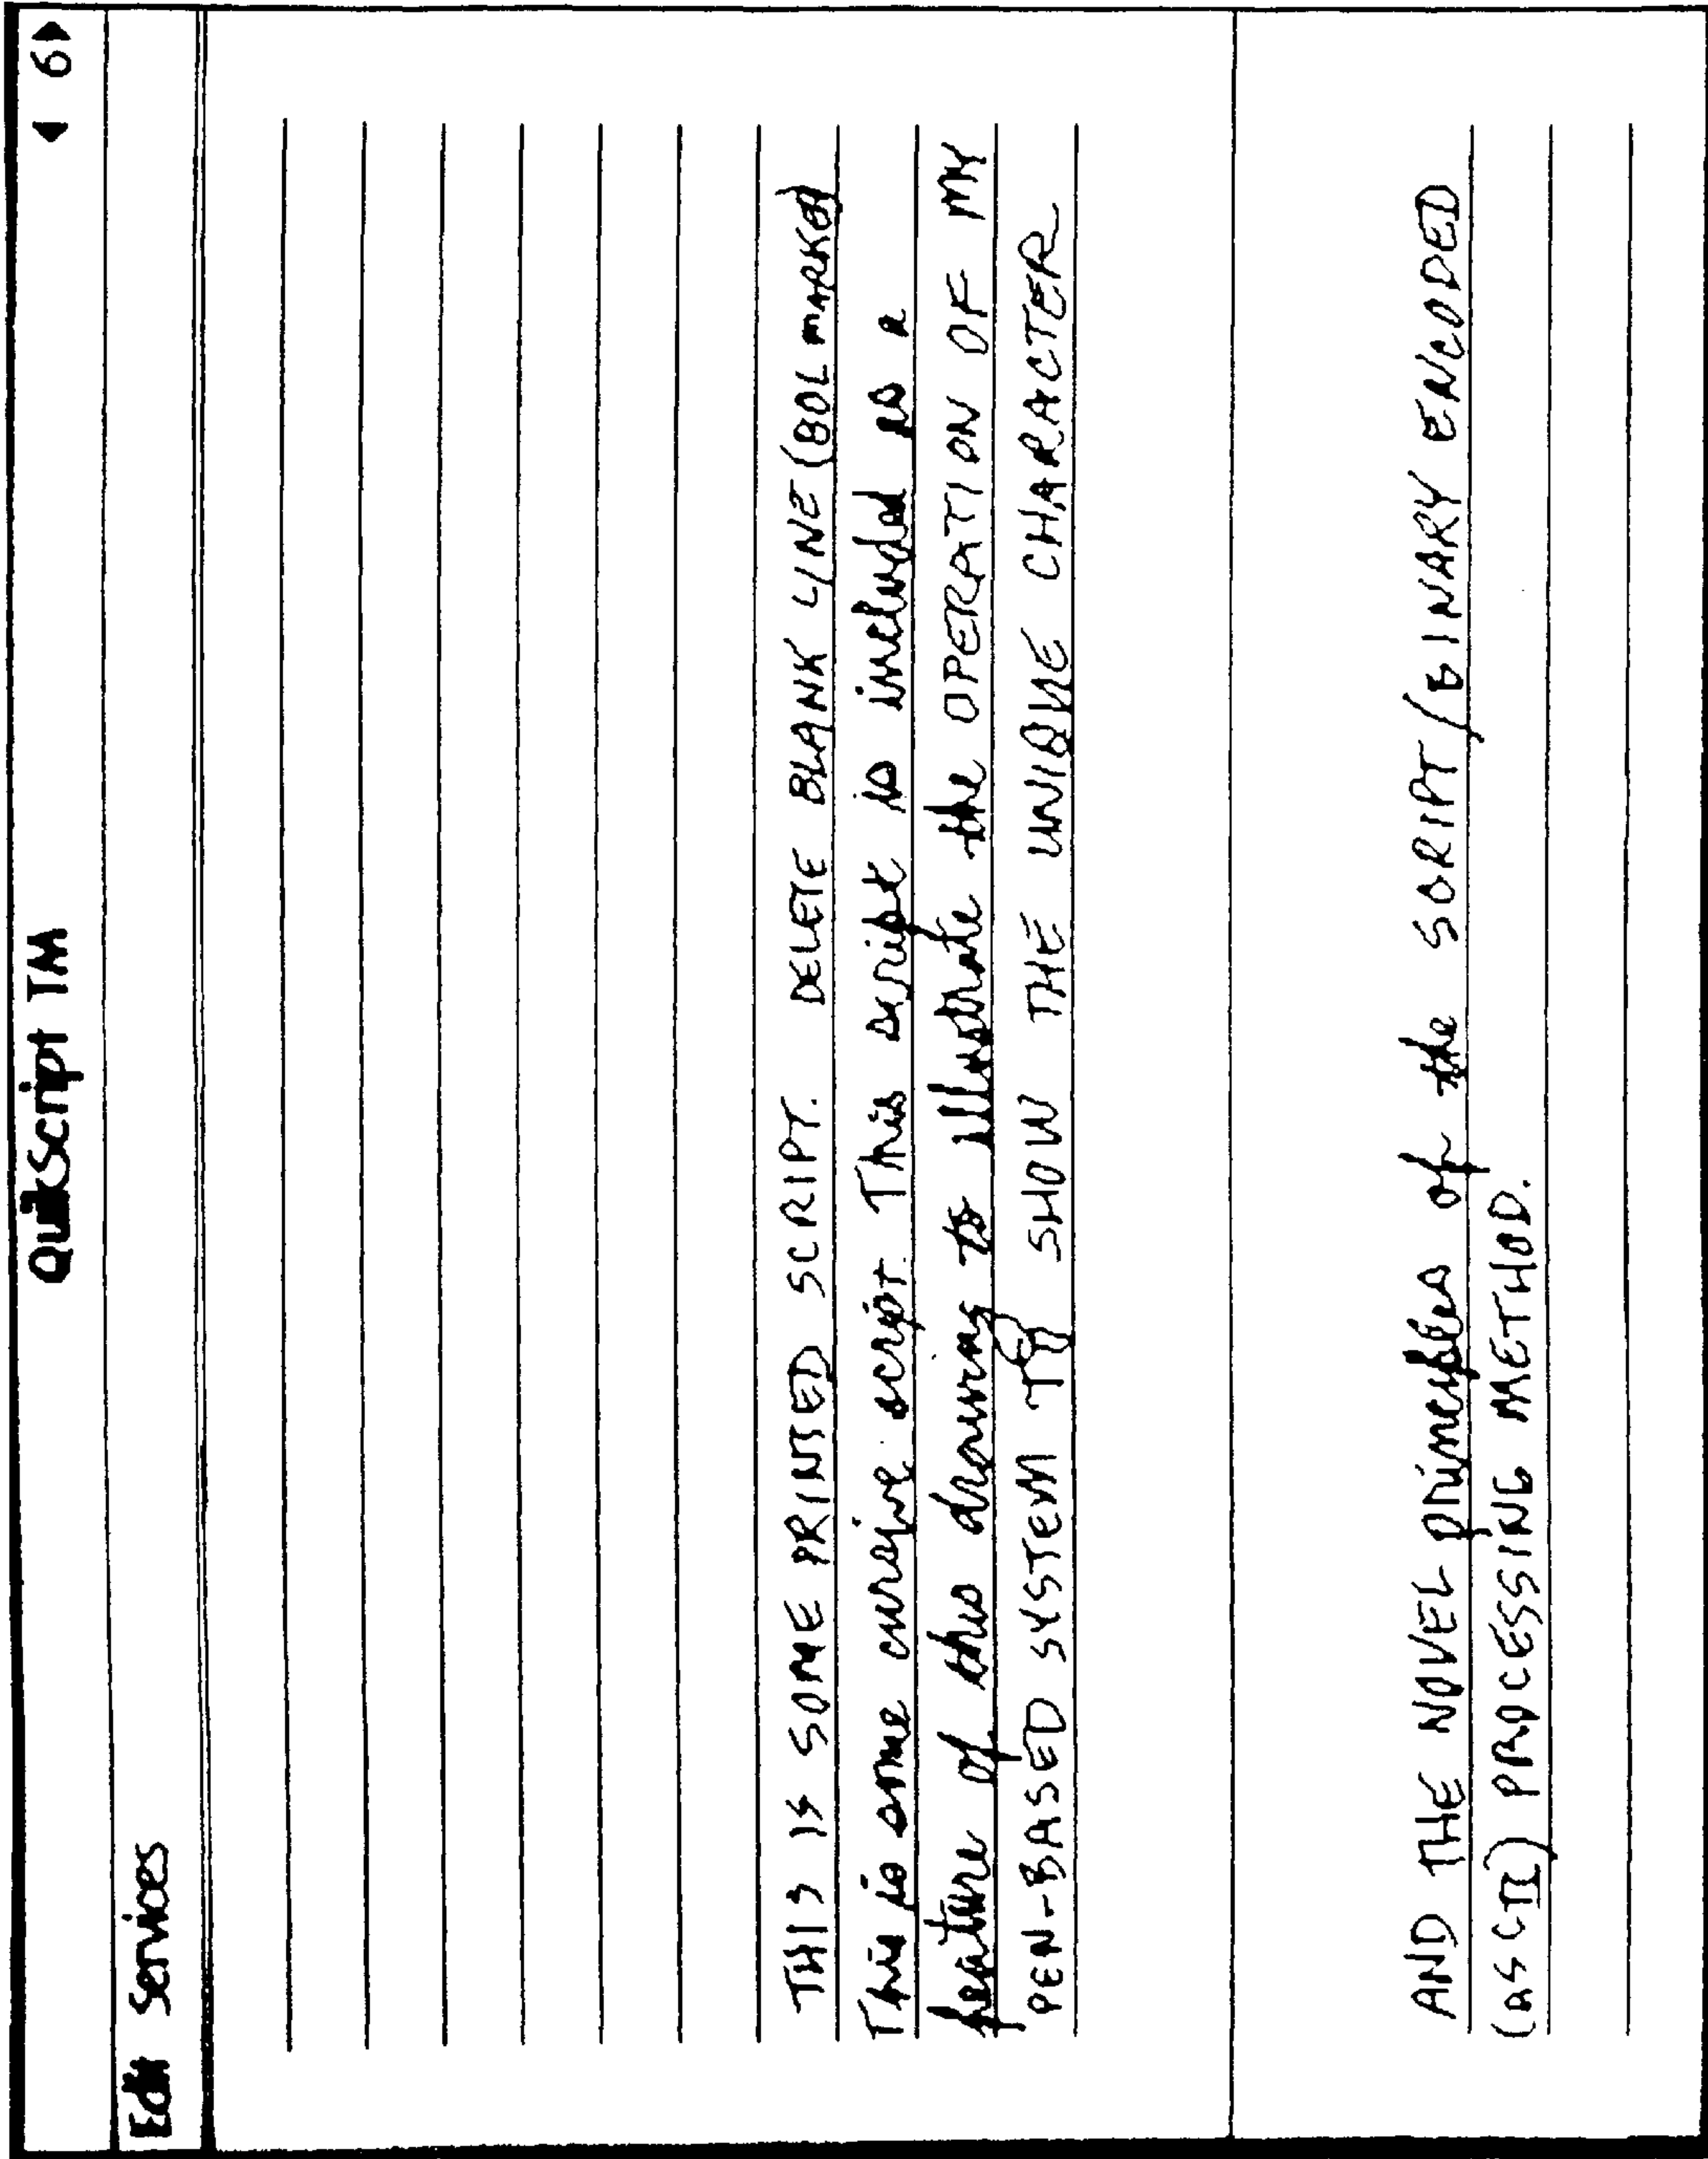 QuikScript TM ◀ 6▶
Edit Services
THIS IS SOME PRINTED SCRIPT. DELETE BLANK LINE (BOL MARKED
This is some cursive script. This script is included as a
feature of this drawing to illustrate the OPERATION OF MY
PEN-BASED SYSTEM TO SHOW THE UNIQUE CHARACTER
AND THE NOVEL principles of the SCRIPT/BINARY ENCODED
(ASCII) PROCESSING METHOD.